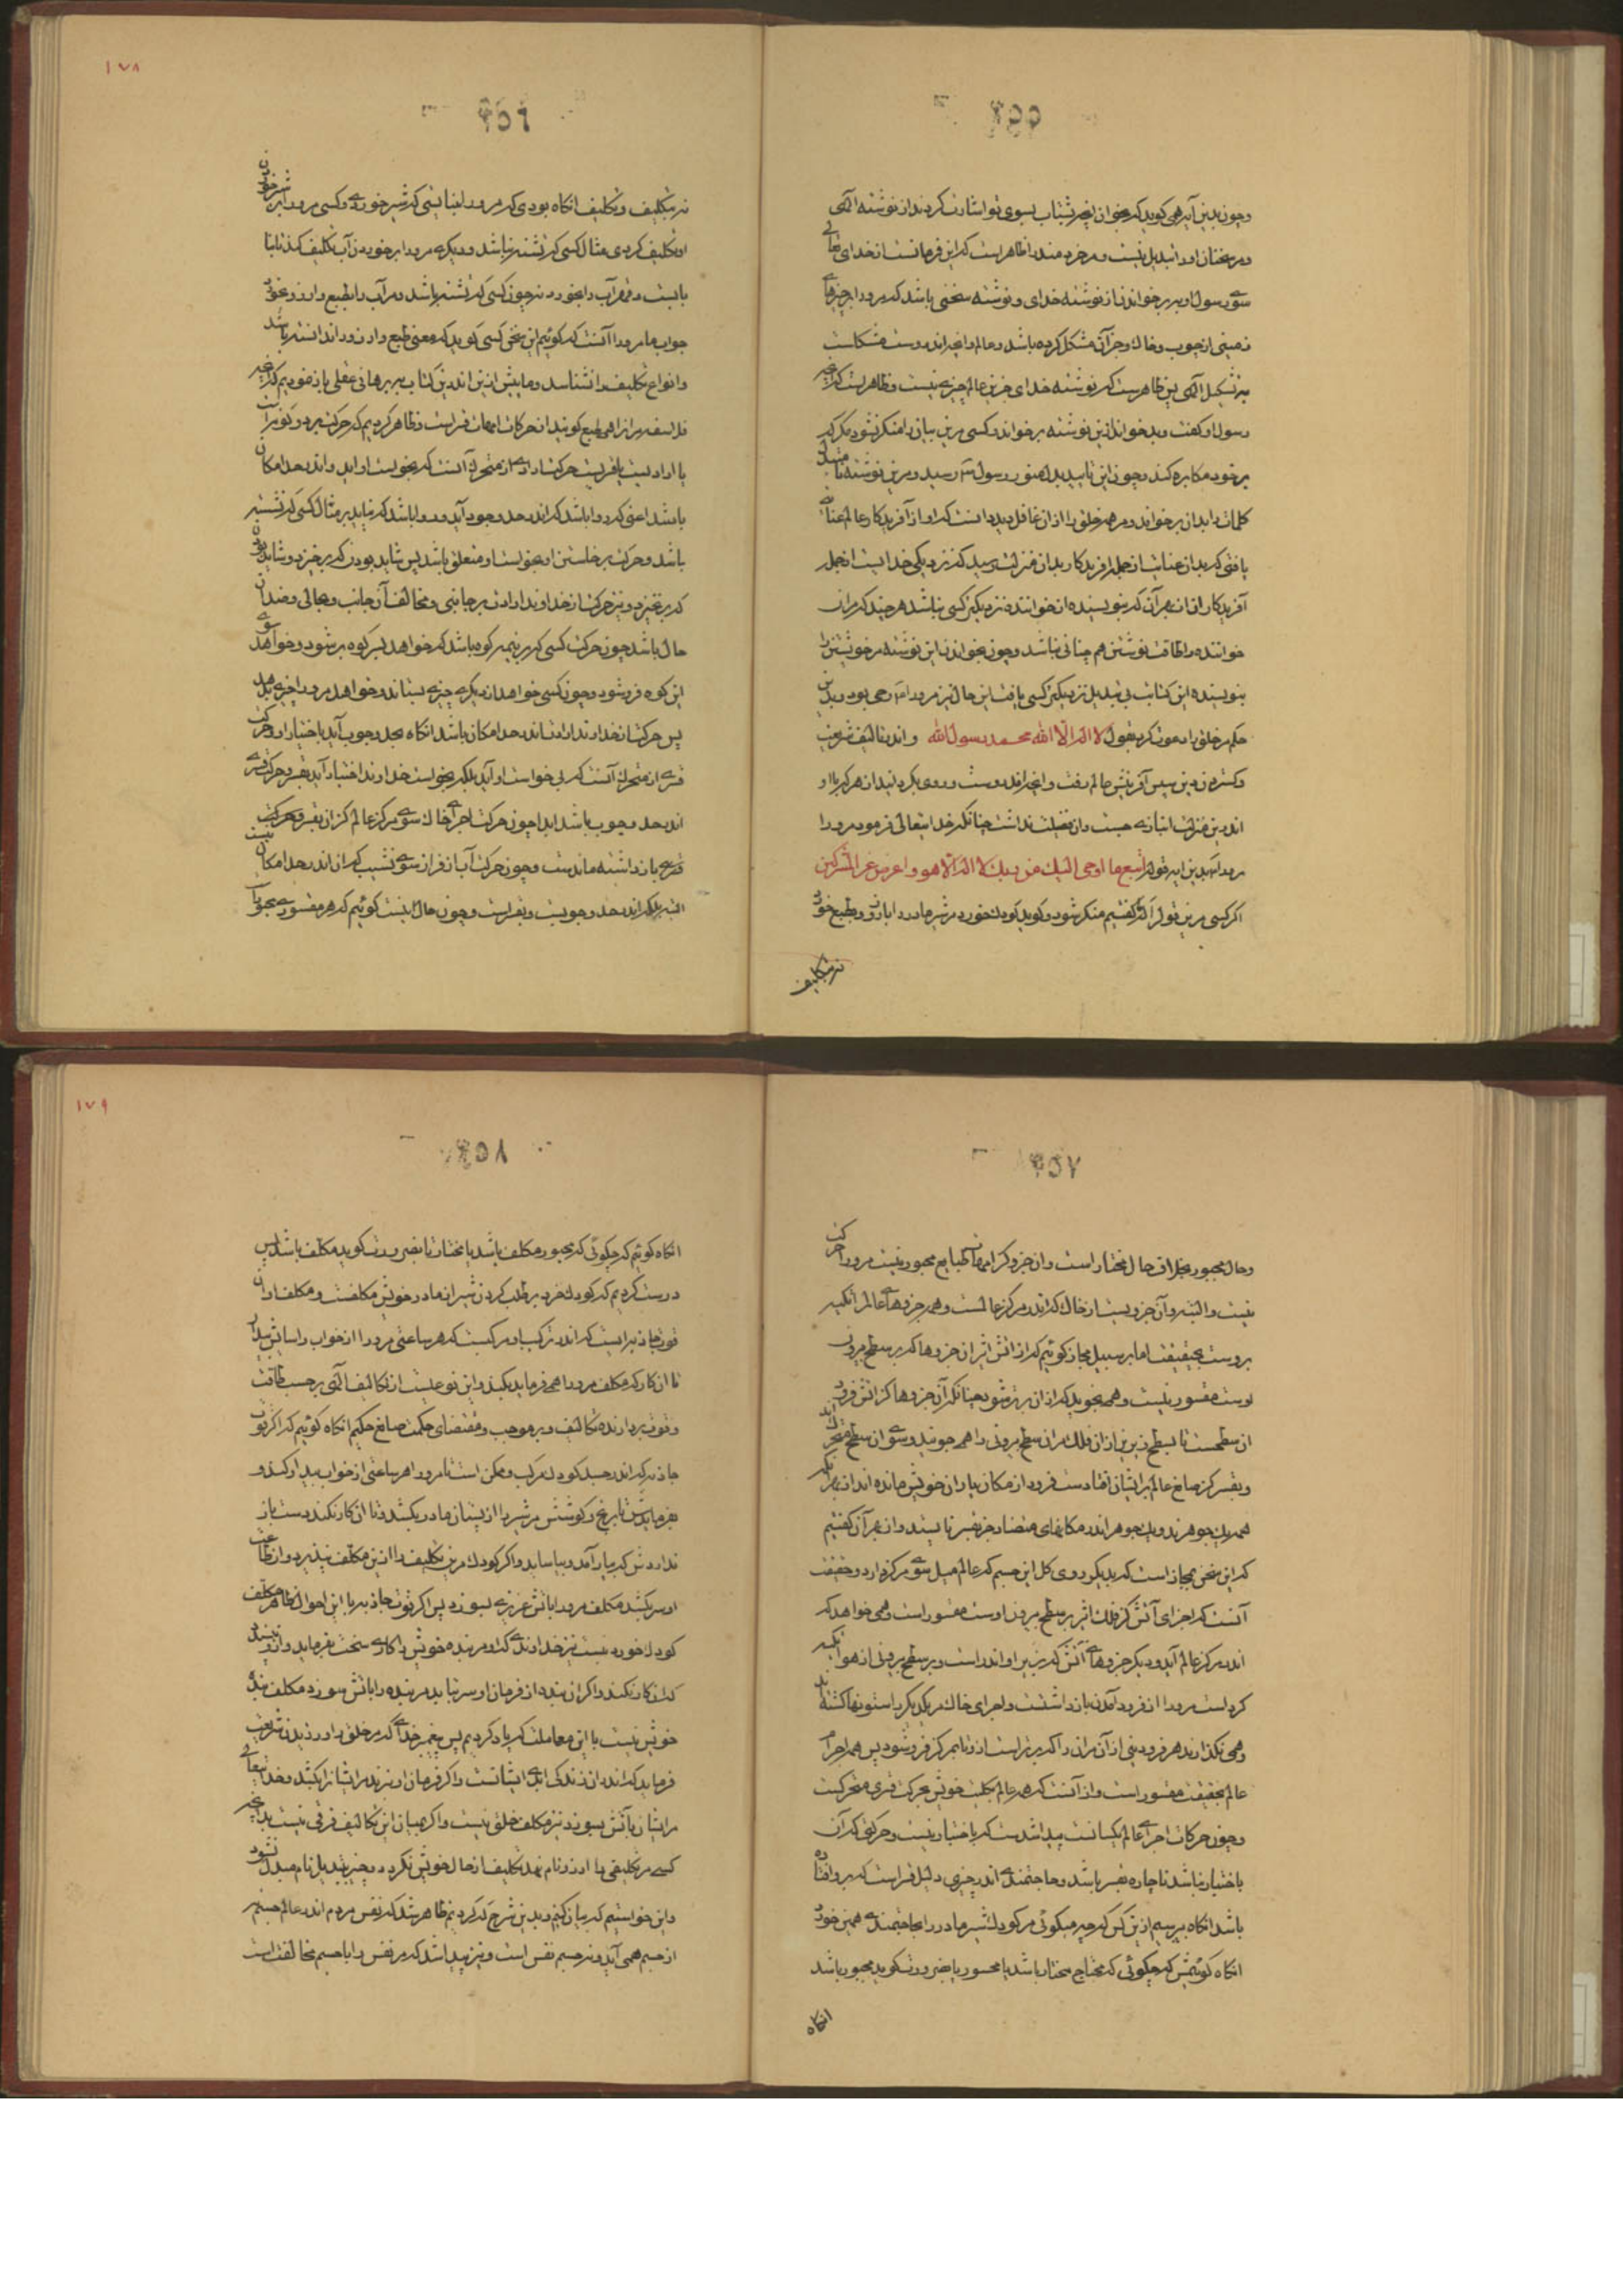 ٣٥٥
وچون بدین آیه همی گوید که بخوان آنچه بشتاب بسوی تو اشارت کردند از نوشته الهی
ومر سخنان او را تبدیل نیست ومر خردمند را ظاهر است که این فرمانست از خدای تعالی
سوی رسول او بر بر خواندن از نوشته خدای و نوشته سخنی باشد که مرو را بر چیزهاء
زمینی از چوب وخاک وجز آن مشکل کرده باشد وعالم وانچه اندروست مشکلست
به تشکیل الهی پس ظاهر است که نوشته خدای جز این عالم چیزی نیست وظاهر است که آنچه
رسول او گفت وبدخواند از این نوشته برخواند وکسی مر این بیان را منکر نشود مگر که
بر خود مکابره کند وچون این تایید بدل منور رسول رسید ومر این نوشته با
کلمات را بدان بر خواند ومر همه خلق را از آن غافل دید دانست که او از آفریدگار عالم عنایتی
یافتی که بدان عنایت از جمله آفریدگار بدان منزلت رسید که نزدیکی خدایست از جمله
آفریدگاران از بهر آن که بنویسنده از خواننده نزدیکتر کسی نباشد هر چند که مر آن
خواننده را طاقت نوشتن هم چنانی نباشد وچون بخواندن این نوشته مر خویشتن را
بنویسنده این کتابت بی تبدیل نزدیکتر کسی یافت این حال نیز مرو را وحی بود وبدین
حکم مر خلق را دعوت کرد بقول لا اله الا الله محمد رسول الله واندر تالیف شریعت
وگستردن دین سپس آفرینش عالم رفت وانچه اندروست وروی بگردانید از هر که با او
اندر این منزلت انبازی جست وان فضیلت نداشت چنانکه خدایتعالی فرمود مرو را
بدین آیه قوله اتبع ما اوحی الیک من ربک لا اله الا هو واعرض عن المشرکین
اگر کسی مر این قول را که گفتیم منکر شود وگوید کودک خورد مر شیر مادر را بآرزو وطبع خورد
نه بتکلیف
١٧٨
٣٥٦
نه بتکلیف وتکلیف آنگاه بودی که مرو را نبایستی که شیر خوردی وکسی مرو را بر شیر خوردن
او تکلیف کردی مثال کسی که تشنه نباشد ودیگری مرو را بر خوردن آب تکلیف کند نابا
بایست وقهر آب را بخورد نه چون کسی که تشنه باشد ومر آب را بطبع وارزو بخورد
جواب ما مرو را آنست که گوئیم این سخن کسی گوید که معنی طبع وارزو را ندانسته باشد
وانواع تکلیف را نشناسد وما پیش از این اندر این کتاب بر برهانی عقلی باز نمودیم که آنچه
فلاسفه مر آنرا همی طبع گویند از حرکات امهات قسر است وظاهر کردیم که حرکت بر دو گونه است
یا ارادیست یا قسریست حرکت ارادی از متحرک آنست که بخواست او آید واندر حد امکان
باشد اعنی که روا باشد که اندر حد وجود آید وروا باشد که نیاید بر مثال کسی که نشسته
باشد وحرکت برخاستن او بخواست او متعلق باشد پس شاید بودن که برخیزد وشاید بودن
که بر نخیزد ونیز حرکت از خداوند ارادت بر جانبی ومخالف آن جانب وبحالی وضد آن
حال باشد چون حرکت کسی که بر نیمه کوه باشد که خواهد بسر کوه بر شود وخواهد سوی
بن کوه فرو شود وچون کسی خواهد از دیگری چیزی بستاند وخواهد مرو را چیزی بدهد
پس حرکت از خداوند ارادت اندر حد امکان باشد آنگاه بحد وجوب آید باختیار او وحرکت
قسری از متحرک آنست که بی خواست او آید بلکه بخواست خداوند اختیار آید بقسر وحرکت قسری
اندر حد وجوب باشد ابدا چون حرکت اجزای خاک سوی مرکز عالم کز آن بقسر وحرکت
قسری باز داشته ماندست وچون حرکت آب از فراز سوی نشیب که آن اندر حد امکان نیست
البته بلکه اندر حد وجوبست وبقسر است وچون حال اینست گوئیم که هر مقسوری مجبور است
٣٥٧
وحال مجبور بخلاف حال مختار است وان جزو کز امهات طبایع مجبور نیست مرو را حرکت
نیست والبته وآن جزویست از خاک که اندر مرکز عالمست وهمه جزوهاء عالم را تکیه
بروست بحقیقت اما بر سبیل مجاز گوئیم که از آتش اثیر آن جزوها که بر سطح بیرونی
اوست مقسور نیست وهمی نجوید که از آن برتر شود چنانکه آن جزوها کز آتش فرود
از آن سطحست تا بسطح زبرین از آن فلک مر آن سطح بیرونی را همی جویند وسوی آن سطح متحرک اند
وبقسر کز صانع عالم بر ایشان افتادست فرود از مکان یاران خویش مانده اند از بهر آنکه
همه یک جوهرند ویک جوهر اندر مکانهای متضاد جز بقسر نایستد وان بهر آن گفتیم
که این سخن مجاز است که بدیگر روی کل این جسم که عالم میل سوی مرکز دارد وحقیقت
آنست که اجزای آتش کز فلک اثیر بر سطح بیرونی اوست مقسور است وهمی خواهد که
اندر مرکز عالم آید ودیگر جزوهاء آتش که زیر او اندر است وبر سطح بیرونی از هوا تکیه
کردست مرو را از فرود آمدن باز داشتست واجزای خاک بر یکدیگر استونها گشته اند
وهمی نگذارند هر فرودینی از آن مر آن را که برتر است از او تا بمرکز فرو شود پس همه اجزا
عالم بحقیقت مقسور است واز آنست که همه عالم بکلیت خویش بحرکت قسری متحرکست
وچون حرکات اجزای عالم یکسانست پیدا شدست که باختیار نیست وحرکتی که آن
باختیار نباشد ناچاره بقسر باشد وحاجتمندی اندر چیزی دلیل قسر است که برو افتاده
باشد آنگاه بپرسیم از این کس که چه میگوئی مر کودک شیر مادر را بحاجتمندی همی خورد
آنگاه گوئیمش که چگوئی که محتاج مختار باشد یا مجبور باضرورت گوید مجبور باشد
آنگاه
١٧٩
٣٥٨
آنگاه گوئیم که چگوئی که مجبور مکلف باشد یا مختار تا بضرورت گوید مکلف باشد پس
درست کردیم که کودک خرد بر طلب کردن شیر از مادر خویش مکلفست ومکلف او آن
قوت جاذبه ایست که اندر ترکیب او مرکبست که هر ساعتی مرو را از خواب واسایش بیدار
تا آن کار که مکلف مرو را همی فرماید بکند واین نوعیست از تکالیف الهی بر حسب طاقت
وقوت بردارنده تکالیف وبر موجب ومقتضای حکمت صانع حکیم آنگاه گوئیم که اگر قوت
جاذبه که اندر جسد کودک مرکب وممکن است تا مرو را هر ساعتی از خواب بیدار کند و
بفرمایدش تا برنج وکوشش مر شیر را از پستان مادر بکشد وتا آن کار نکند دست باز
نداردش که بیارامد وبیاساید واگر کودک مر این تکلیف را از این مکلف نپذیرد واز طاعت
او سر بکشد مکلف مرو را باتش عزیزی بسوزد پس اگر قوت جاذبه با این احوال ظاهر مکلف
کودک خورد نیست نیز خداوندی که او مر بنده خویش را کاری سخت بفرماید واز او نپسندد
که آن کار نکند واگر آن بنده از فرمان او سر بتابد مر بنده را باتش سوزد مکلف بنده
خویش نیست با این معاملت که یاد کردیم پس پیغمبر خدای که مر خلق را ورزیدن شریعت
فرماید که اندر آن زندگی ابدی ایشانست واگر فرمان او نبرند مر ایشانرا بکشد وخدایتعالی
مر ایشان را بآتش بسوزد نیز مکلف خلق نیست واگر میان این تکالیف فرقی نیست بدانچه
کسی مر تکلیفی را ارزو نام نهد تکلیف از حال خویش نگردد وچیز بتبدیل نام مبدل نشود
واین خواستیم که بیان کنیم وبدین شرح که کردیم ظاهر شد که نفس مردم اندر عالم جسم نه
از جسم همی آید ونه جسم نفس است ونیز پیدا شد که مر نفس را با جسم مخالفت است